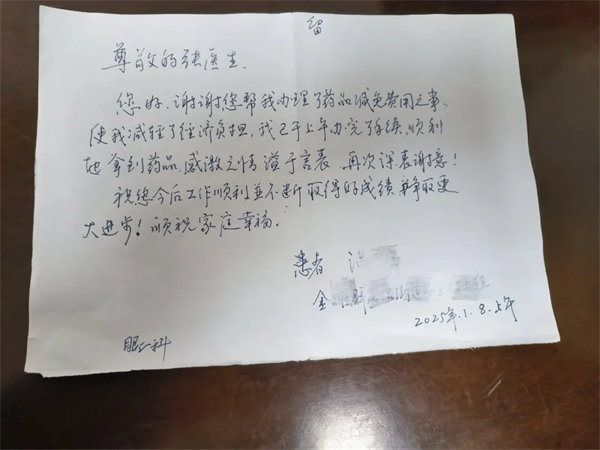 留
尊敬的张医生.
您好.谢谢您帮我办理了药品减免费用之事、
使我减轻了经济负担,我已于上午办完手续、顺利
地拿到药品,感激之情溢于言表、再次深表谢意!
祝您今后工作顺利并不断取得好成绩争取更
大进步!顺祝家庭幸福.
患者
金
2025年.1.8.上午
眼一科